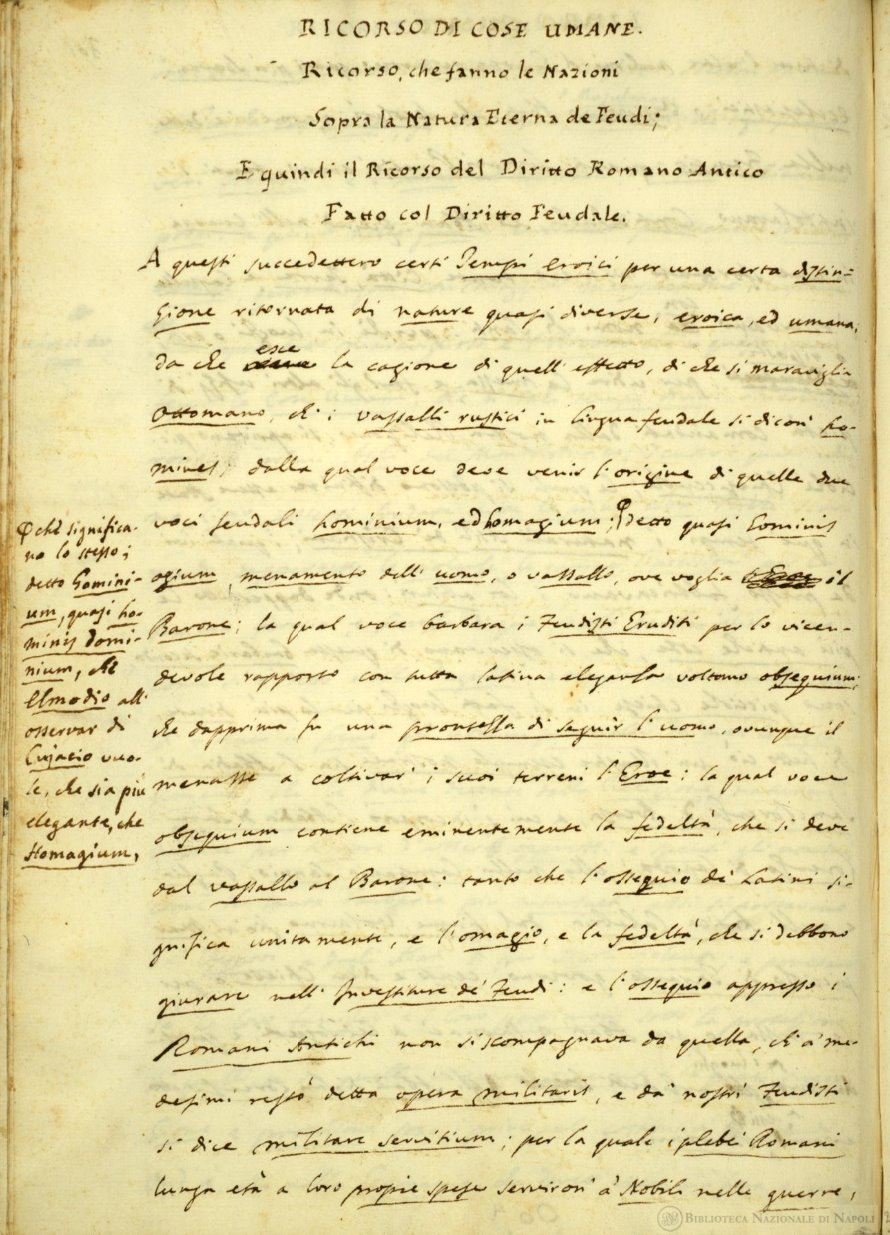 RICORSO DI COSE UMANE.
Ricorso, che fanno le Nazioni
Sopra la Natura Eterna de Feudi;
E quindi il Ricorso del Diritto Romano Antico
Fatto col Diritto Feudale.
A questi succedettero certi Tempi eroici per una certa distin-
zione ritornata di nature quasi diverse, eroica, ed umana,
da che esce la cagione di quell' effetto, di che si maraviglia
Ottomano, ch' i vassalli rustici in lingua feudale si dicon' ho-
mines; dalla qual voce deve venir l'origine di quelle due
voci feudali hominium, ed homagium; detto quasi hominis
agium, menamento dell' uomo, o vassallo, ove voglia il
Barone; la qual voce barbara i Feudisti Eruditi per lo vicen-
devole rapporto con tutta latina eleganza voltono obsequium;
che dapprima fu una prontezza di seguir l'uomo, ovunque il
menasse a coltivar' i suoi terreni l'Eroe: la qual voce
obsequium contiene eminentemente la fedeltà, che si deve
dal vassallo al Barone: tanto che l'ossequio de' Latini si-
gnifica unitamente, e l'omagio, e la fedeltà, che si debbono
giurare nell' Investiture de' Feudi: e l'ossequio appresso i
Romani Antichi non si scompagnava da quella, ch' a' me-
desimi restò detta opera militaris, e da' nostri Feudisti
si dice militare servitium; per la quale i plebei Romani
lunga età a loro propie spese serviron' a' Nobili nelle guerre,
che significa-
no lo stesso;
detto homini-
um, quasi ho-
minis domi-
nium, che
Elmodio all'
osservar di
Cujacio vuo-
le, che sia più
elegante, che
Homagium,
BIBLIOTECA NAZIONALE DI NAPOLI